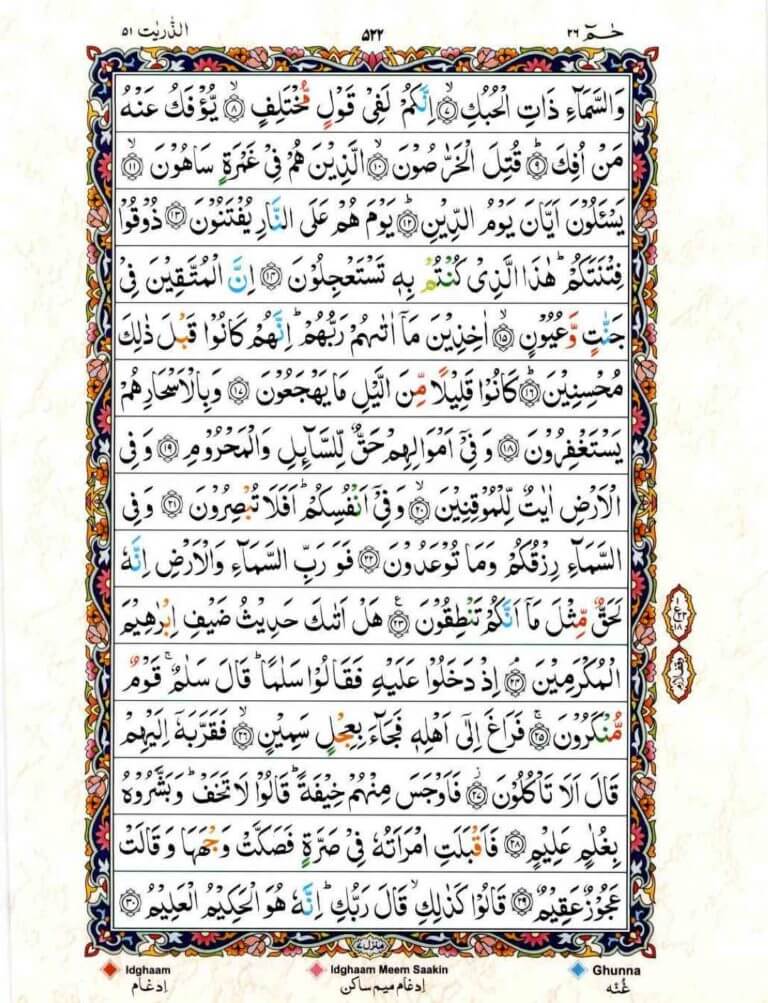 حٰمٓ ٢٦
٥٢٢
الذّٰریٰت ٥١
وَالسَّمَآءِ ذَاتِ الْحُبُكِ ۙ﴿٧﴾ اِنَّكُمْ لَفِیْ قَوْلٍ مُّخْتَلِفٍ ۙ﴿٨﴾ یُّؤْفَكُ عَنْهُ
مَنْ اُفِكَ ؕ﴿٩﴾ قُتِلَ الْخَرّٰصُوْنَ ۙ﴿١٠﴾ الَّذِیْنَ هُمْ فِیْ غَمْرَةٍ سَاهُوْنَ ۙ﴿١١﴾
یَسْـَٔلُوْنَ اَیَّانَ یَوْمُ الدِّیْنِ ؕ﴿١٢﴾ یَوْمَ هُمْ عَلَی النَّارِ یُفْتَنُوْنَ ﴿١٣﴾ ذُوْقُوْا
فِتْنَتَكُمْ ؕ هٰذَا الَّذِیْ كُنْتُمْ بِهٖ تَسْتَعْجِلُوْنَ ﴿١٤﴾ اِنَّ الْمُتَّقِیْنَ فِیْ
جَنّٰتٍ وَّعُیُوْنٍ ۙ﴿١٥﴾ اٰخِذِیْنَ مَاۤ اٰتٰىهُمْ رَبُّهُمْ ؕ اِنَّهُمْ كَانُوْا قَبْلَ ذٰلِكَ
مُحْسِنِیْنَ ؕ﴿١٦﴾ كَانُوْا قَلِیْلًا مِّنَ الَّیْلِ مَا یَهْجَعُوْنَ ﴿١٧﴾ وَبِالْاَسْحَارِ هُمْ
یَسْتَغْفِرُوْنَ ﴿١٨﴾ وَفِیْۤ اَمْوَالِهِمْ حَقٌّ لِّلسَّآىِٕلِ وَالْمَحْرُوْمِ ﴿١٩﴾ وَفِی
الْاَرْضِ اٰیٰتٌ لِّلْمُوْقِنِیْنَ ۙ﴿٢٠﴾ وَفِیْۤ اَنْفُسِكُمْ ؕ اَفَلَا تُبْصِرُوْنَ ﴿٢١﴾ وَفِی
السَّمَآءِ رِزْقُكُمْ وَمَا تُوْعَدُوْنَ ﴿٢٢﴾ فَوَرَبِّ السَّمَآءِ وَالْاَرْضِ اِنَّهٗ
لَحَقٌّ مِّثْلَ مَاۤ اَنَّكُمْ تَنْطِقُوْنَ ﴿٢٣﴾ هَلْ اَتٰىكَ حَدِیْثُ ضَیْفِ اِبْرٰهِیْمَ
الْمُكْرَمِیْنَ ۘ﴿٢٤﴾ اِذْ دَخَلُوْا عَلَیْهِ فَقَالُوْا سَلٰمًا ؕ قَالَ سَلٰمٌ ۚ قَوْمٌ
مُّنْكَرُوْنَ ۚ﴿٢٥﴾ فَرَاغَ اِلٰۤی اَهْلِهٖ فَجَآءَ بِعِجْلٍ سَمِیْنٍ ۙ﴿٢٦﴾ فَقَرَّبَهٗۤ اِلَیْهِمْ
قَالَ اَلَا تَاْكُلُوْنَ ؗ﴿٢٧﴾ فَاَوْجَسَ مِنْهُمْ خِیْفَةً ؕ قَالُوْا لَا تَخَفْ ؕ وَبَشَّرُوْهُ
بِغُلٰمٍ عَلِیْمٍ ﴿٢٨﴾ فَاَقْبَلَتِ امْرَاَتُهٗ فِیْ صَرَّةٍ فَصَكَّتْ وَجْهَهَا وَقَالَتْ
عَجُوْزٌ عَقِیْمٌ ﴿٢٩﴾ قَالُوْا كَذٰلِكِ ۙ قَالَ رَبُّكِ ؕ اِنَّهٗ هُوَ الْحَكِیْمُ الْعَلِیْمُ ﴿٣٠﴾
منزل ٧
Idghaam
ادغام
Idghaam Meem Saakin
ادغام میم ساکن
Ghunna
غُنّه